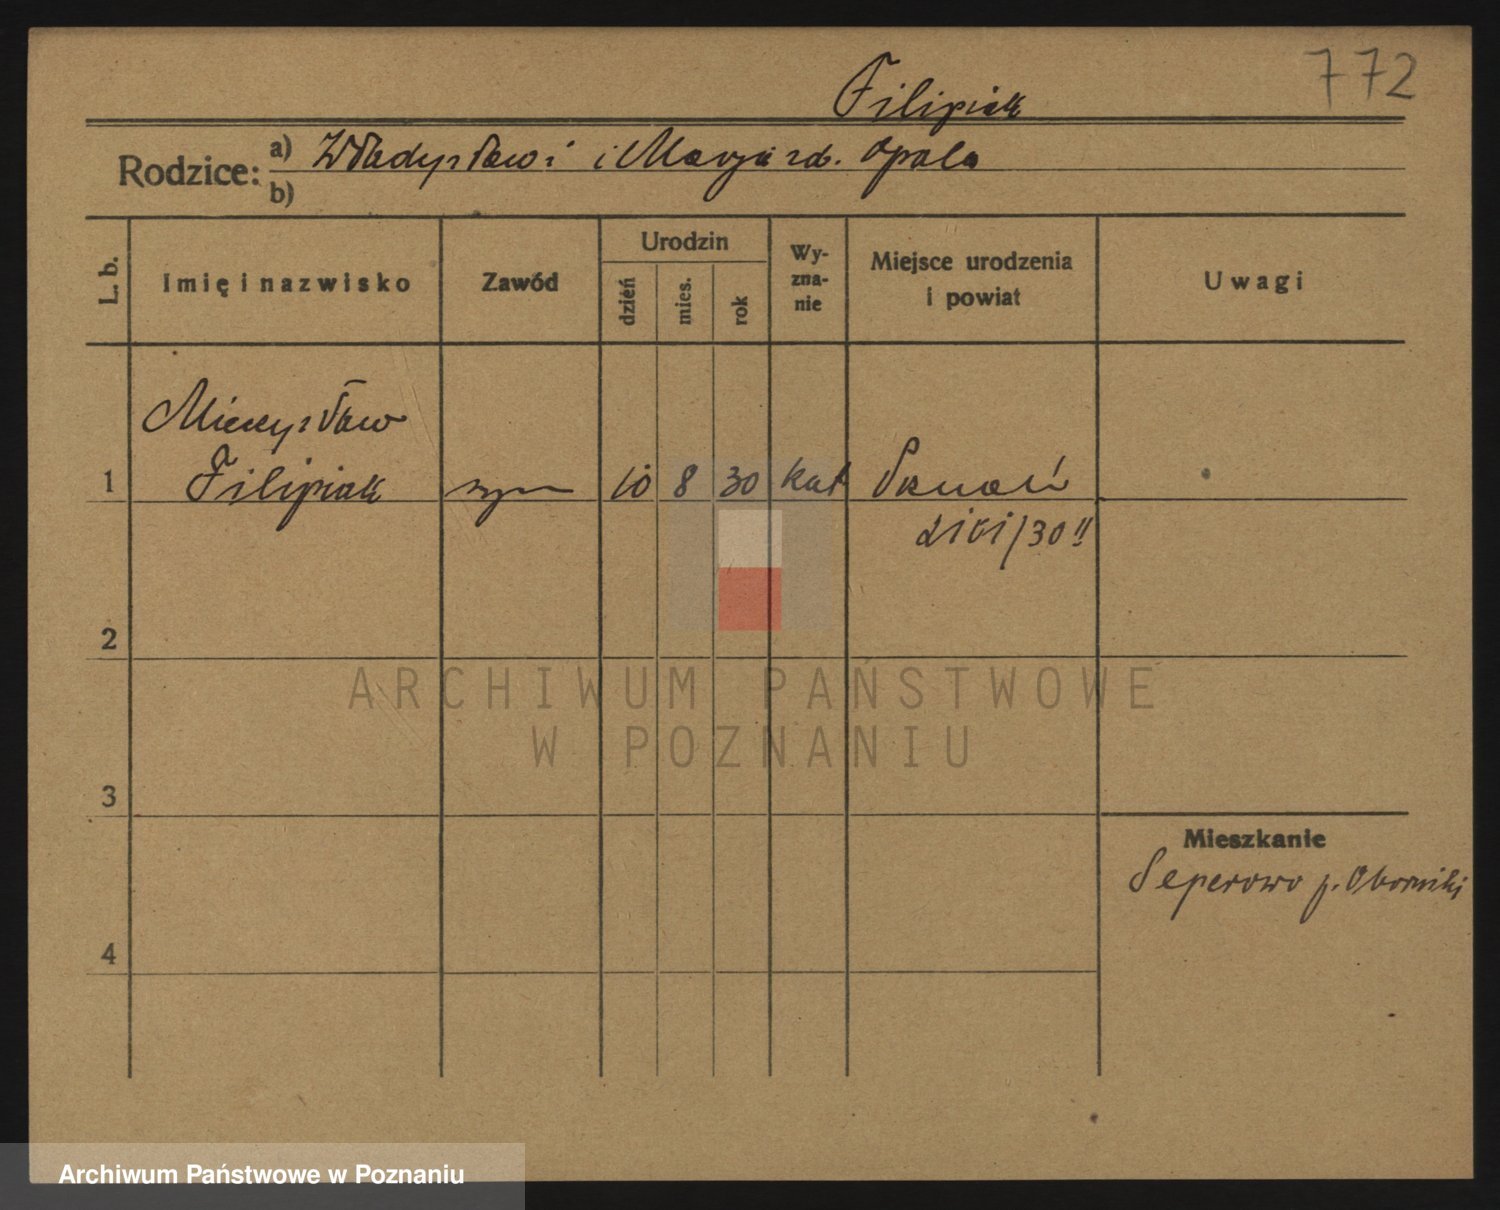 Filipiak
772
Rodzice: a) Władysław i Marja zd. Opala
b)
L. b.
Imię i nazwisko
Zawód
Urodzin
dzień
mies.
rok
Wy-
zna-
nie
Miejsce urodzenia
i powiat
Uwagi
Mieczysław
1 Filipiak syn 10 8 30 kat Poznań
/30 II
2
3
4
Mieszkanie
p. Oborniki
ARCHIWUM PAŃSTWOWE
W POZNANIU
Archiwum Państwowe w Poznaniu